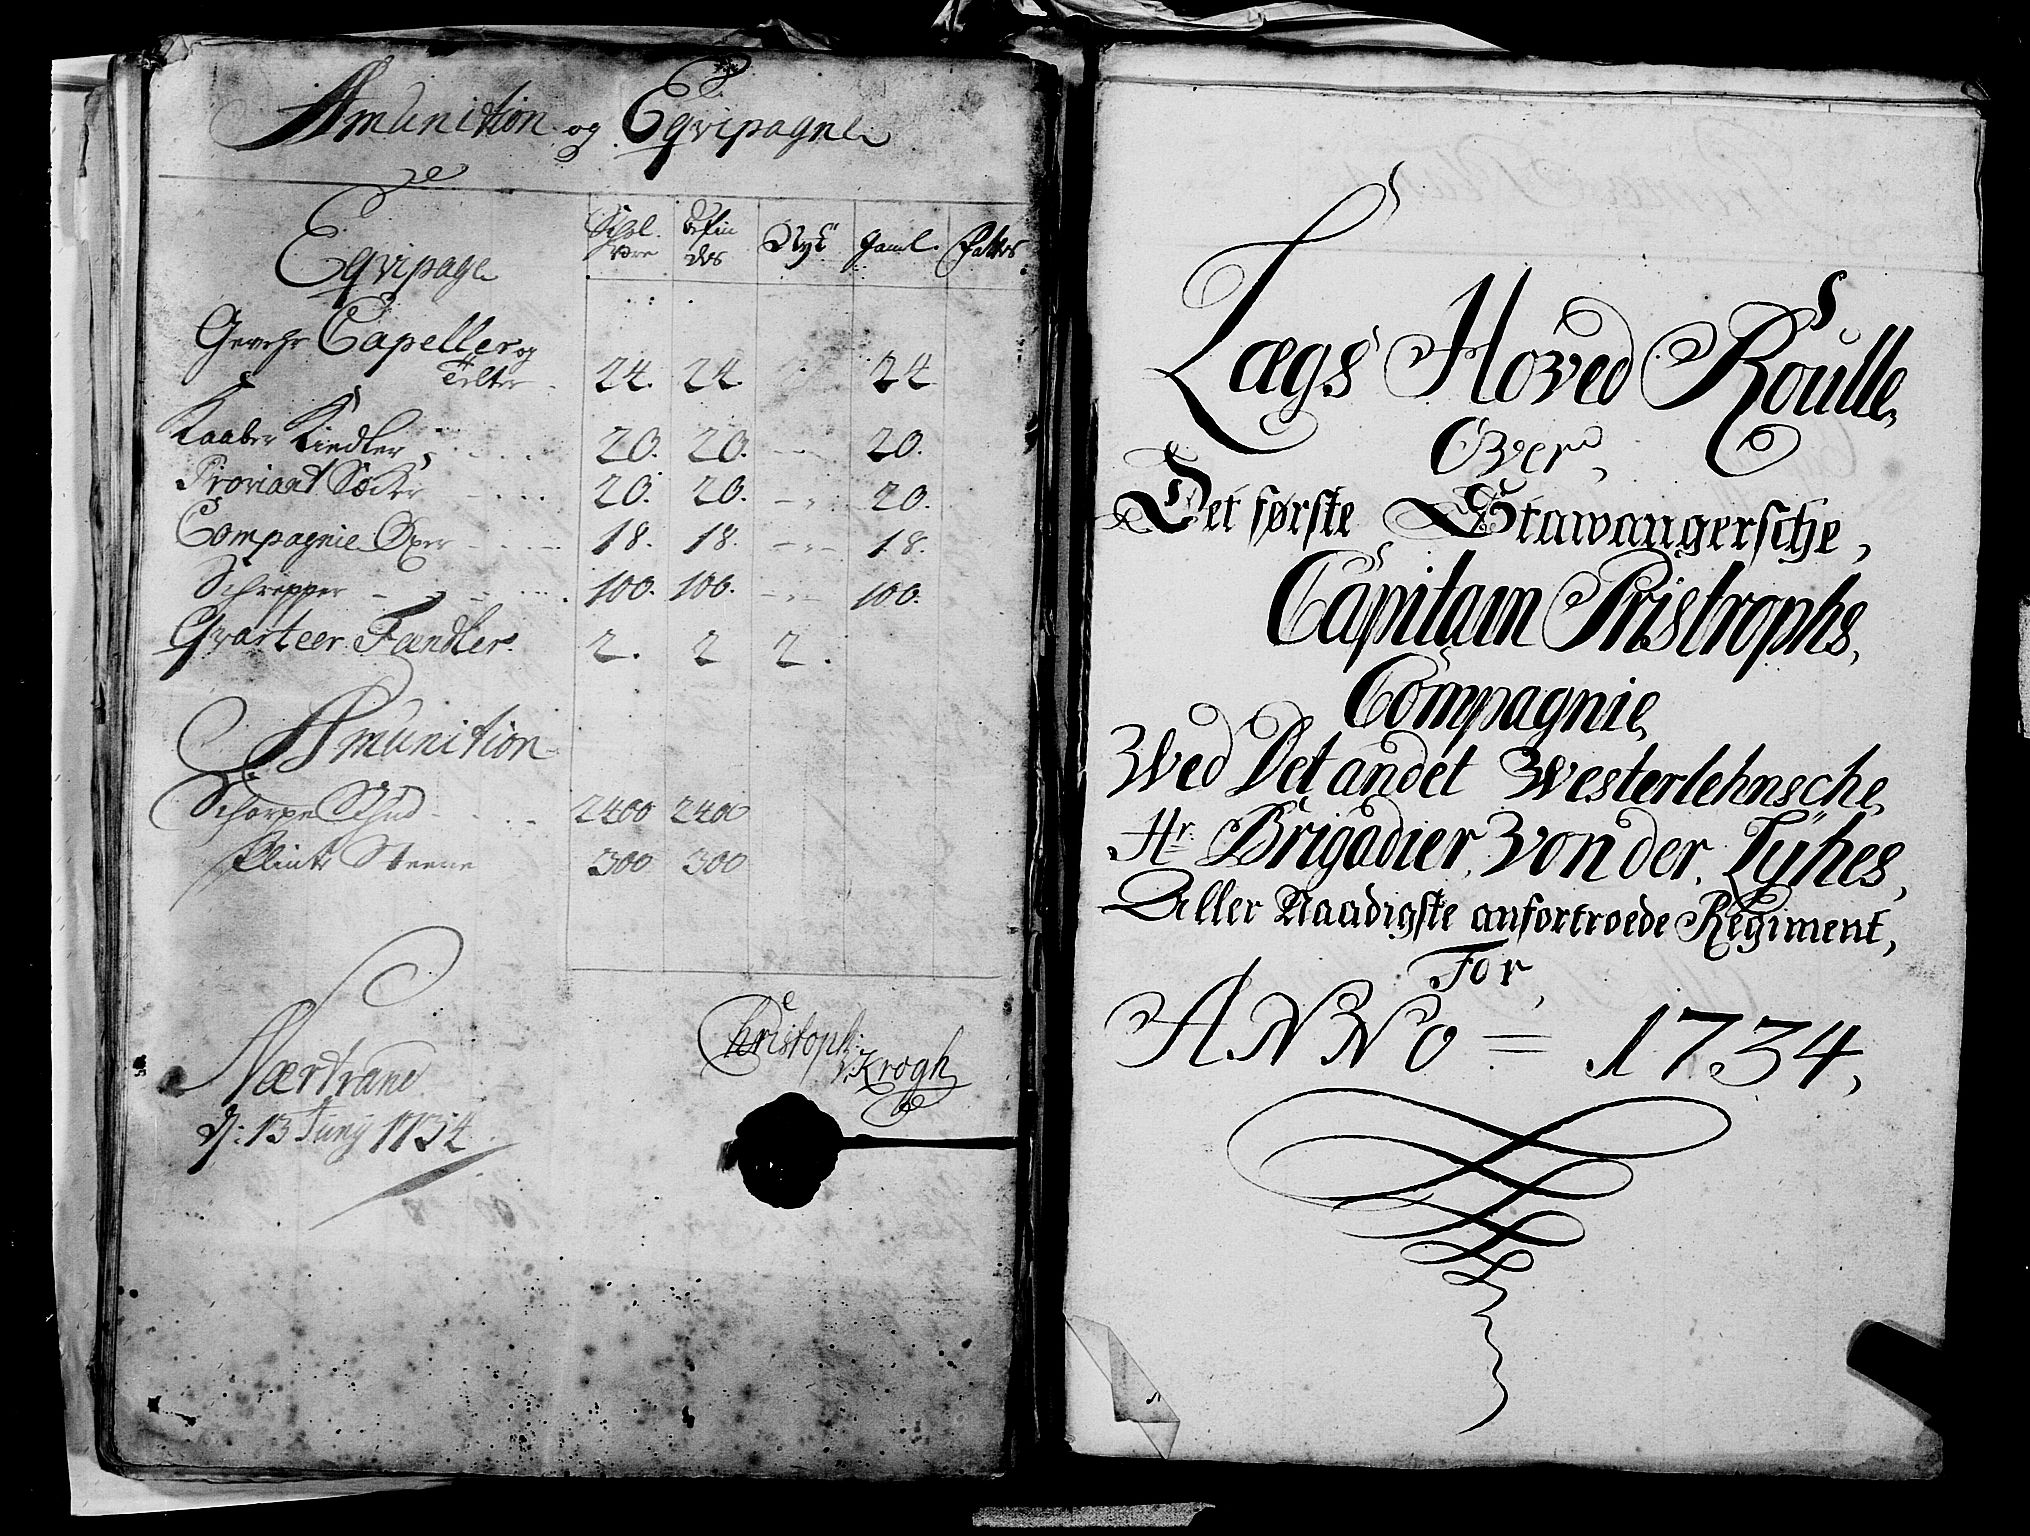 Amunition og Eqvipagne
Eqvipage
Schal være
Befin des
Nyt
Gaml.
Fattes
Gevehr Capeller og
Telter - 24. 24 24
Kaaber Kiedler 20. 20. 20.
Proviant Sæcker 20. 20. 20.
Compagnie Öxer 18. 18. 18.
Schrepper 100. 100. 100.
Qvarteer Fændler. 2. 2 2.
Amunition
Scharpe Schud 2400 2400
Flinte Steene 300 300
Nærstrand
d: 13 Juny 1734
Christoph:
v Krogh
Lægs Hoved Roulle,
Over,
Det første Stawangersche,
Capitain Pristrophs,
Compagnie,
Wed Det andet Westerlehnsche,
Hr. Brigadier, von der, Lÿhes,
Aller Naadigste anfortroede Regiment,
For,
ANNo = 1734,